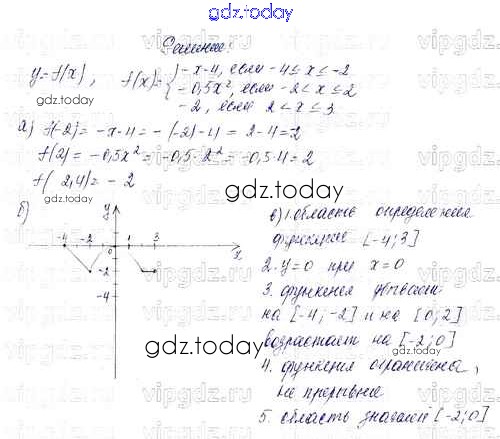 gdz.today
Решение:
y=f(x), f(x)= { -x-4, если -4≤x≤-2
-0,5x², если -2<x≤2
-2, если 2<x≤3
gdz.today
а) f(-2)= -x-4=-(-2)-4=2-4=2
f(2)=-0,5x²=-0,5·2²=-0,5·4=2
f( 2,4)= -2
gdz.today
б)
y
-4 -2 0 1 3 x
-2
-4
gdz.today
в) 1. область определения
функции [-4;3]
2. y=0 при x=0
3. функция убывает
на [-4;-2] и на [0;2]
возрастает на [-2;0]
4. функция ограничена,
непрерывна
5. область значений [-2;0]
gdz.today